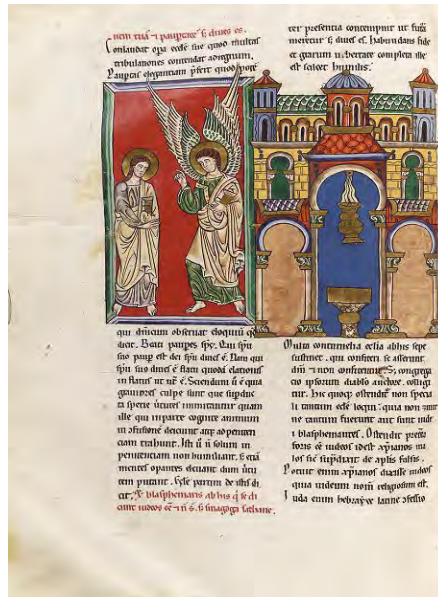 nem tuā ⁊ paupertatē s; diues es.
conlaudat opa eccle sue quod multas
tribulationes contendat ad regnum.
Paupertas elegantiam pfert quod
qui dn̄icum obseruat eloquiū
dicit. Beati paupes spū. Qui spū
suo paup est dei spū diues ē. Nam qui
spū suo diues ē flatu quodā elationis
in flatus ut ē. Sciendum ē quia
grauiores culpe sunt que
spetie uirtutes imitantur quam
ille qui aparte cognite animum
in fusione deiciunt atq; ad peniten
ciam trahunt. Isti ū ñ solum in
penitenciam non humiliant. s; etiā
mentes opantes deuiant dum uirtu
tem putant. partem de istis di
cit. Et blasphemaris ab his q̄ se di
cunt iudeos eē ⁊ ñ s̄. s; sinagoga sathane.
ter presentia contempnit ut futura
meretur s; diues es. habundans fide
et gratiarum ubertate completa ille
est scilicet humilis.
Multa contumelia eclia ab his sepe
sustinet. qui confiteri se asserunt
dn̄m ⁊ non confitentur. S; congrega
cio ipsorum diabolo auctore. colligi
tur. Hic quoq; ostendit non specia
li tantum eccle loqui. quia non
ne tantum fuerunt aut sunt iudei
⁊ blasphemantes. Ostendit preter
foris eē iudeos idest xp̄ianos ma
los sic supdixit de aplis falsis.
Potuit enim xp̄ianos dixisse iudeos
quia iudeum nom̄ religiosum est.
Iuda enim hebrayce latine